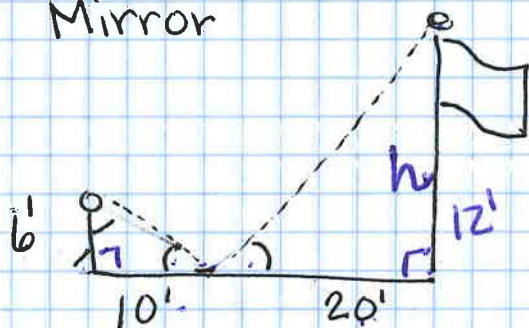 Mirror
h
6'
12'
10'
20'